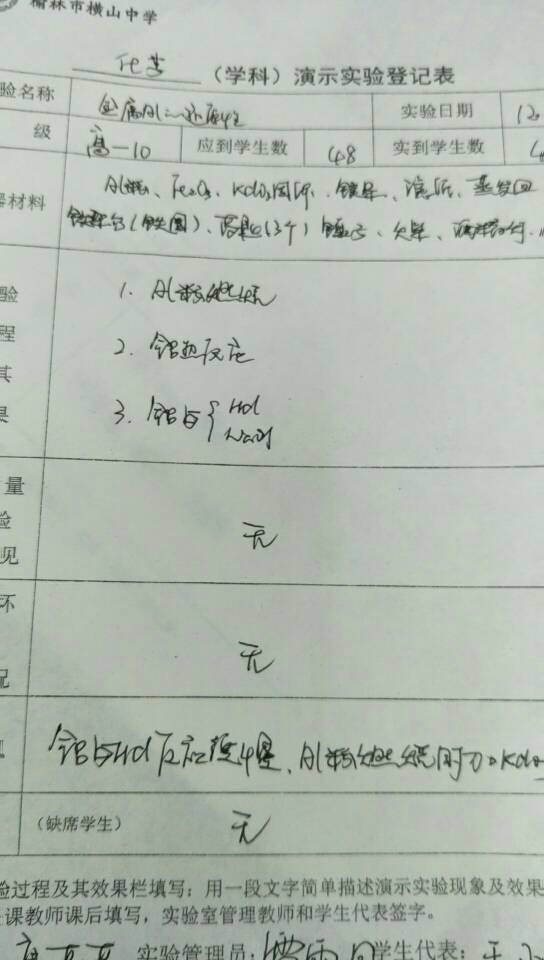 榆林市横山中学
化学（学科）演示实验登记表
验名称 金属Al的还原性 实验日期 12
级 高一10 应到学生数 48 实到学生数 4
器材料 Al粉、Fe₂O₃、KClO₃固体、镁条、滤纸、蒸发皿
铁架台（铁圈）、（3个）
验 1. Al粉燃烧
程 2. 铝热反应
其
果 3. 铝与{HCl
NaOH
量
验 无
见
不
无
况
铝与HCl反应慢、Al粉燃烧时
（缺席学生） 无
验过程及其效果栏填写：用一段文字简单描述演示实验现象及效果
课教师课后填写，实验室管理教师和学生代表签字。
实验管理员： 学生代表：